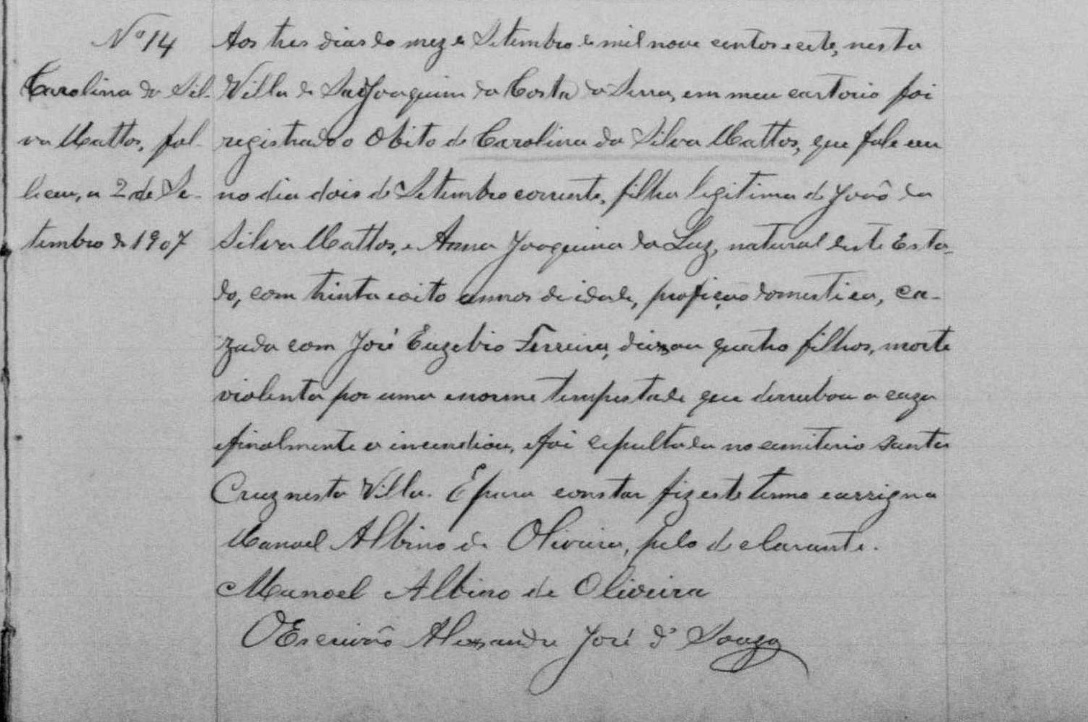 Nº 14
Carolina da Sil-
va Mattos, fal-
leceu, a 2 de Se-
tembro de 1907
Aos tres dias do mez de Setembro de mil nove centos e cete, nesta
Villa de São Joaquim da Costa da Serra, em meu cartorio foi
registrado o Obito de Carolina da Silva Mattos, que faleceu
no dia dois de Setembro corrente, filha legitima de João da
Silva Mattos, e Anna Joaquina da Luz, natural deste Esta-
do, com trinta e oito annos de idade, profição domestica, ca-
zada com José Euzebio Ferreira, deixou quatro filhos, morte
violenta por uma enorme tempestade que derrubou a caza
e finalmente a incendiou, e foi cepultada no cemiterio Santa
Cruz nesta Villa. E para constar fiz este termo e assigna
Manoel Albino de Oliveira, pelo declarante.
Manoel Albino de Oliveira
O Escrivão Alexandre José d' Souza